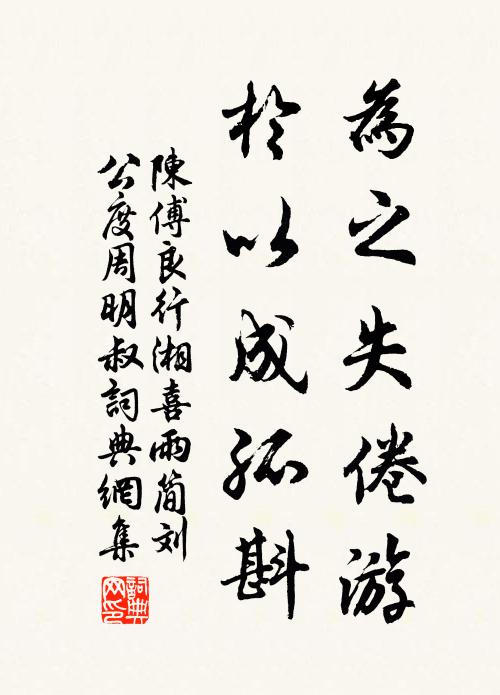 為之失倦游
於以成孤斟
陳傅良行湘喜雨簡刘
公度周明叔詞典網集
詞典
网印